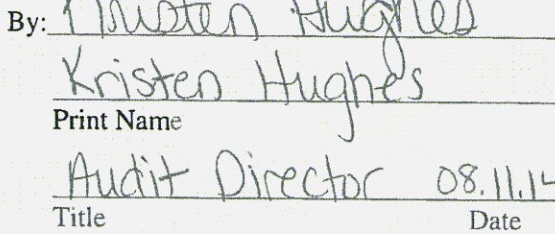 By: Kristen Hughes
Kristen Hughes
Print Name
Audit Director 08.11.14
Title Date